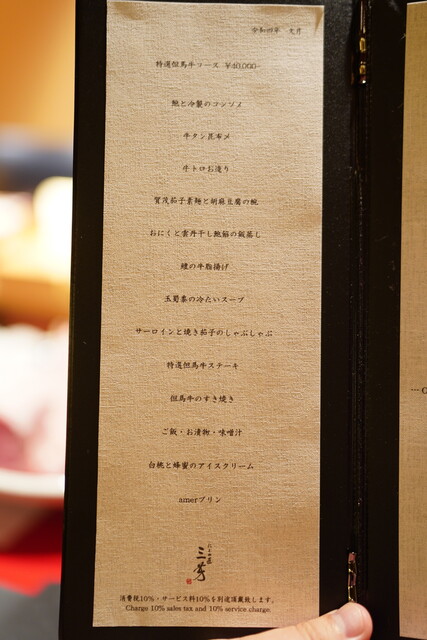 令和四年 九月
特選但馬牛コース ¥40,000-
鮑と冷製のコンソメ
牛タン昆布〆
牛トロお造り
賀茂茄子素麺と胡麻豆腐の椀
おにくと雲丹干し鮑餡の飯蒸し
鱧の牛脂揚げ
玉蜀黍の冷たいスープ
サーロインと焼き茄子のしゃぶしゃぶ
特選但馬牛ステーキ
但馬牛のすき焼き
ご飯・お漬物・味噌汁
白桃と蜂蜜のアイスクリーム
amerプリン
にくの匠
三芳
消費税10%・サービス料10%を別途頂戴致します。
Charge 10% sales tax and 10% service charge.